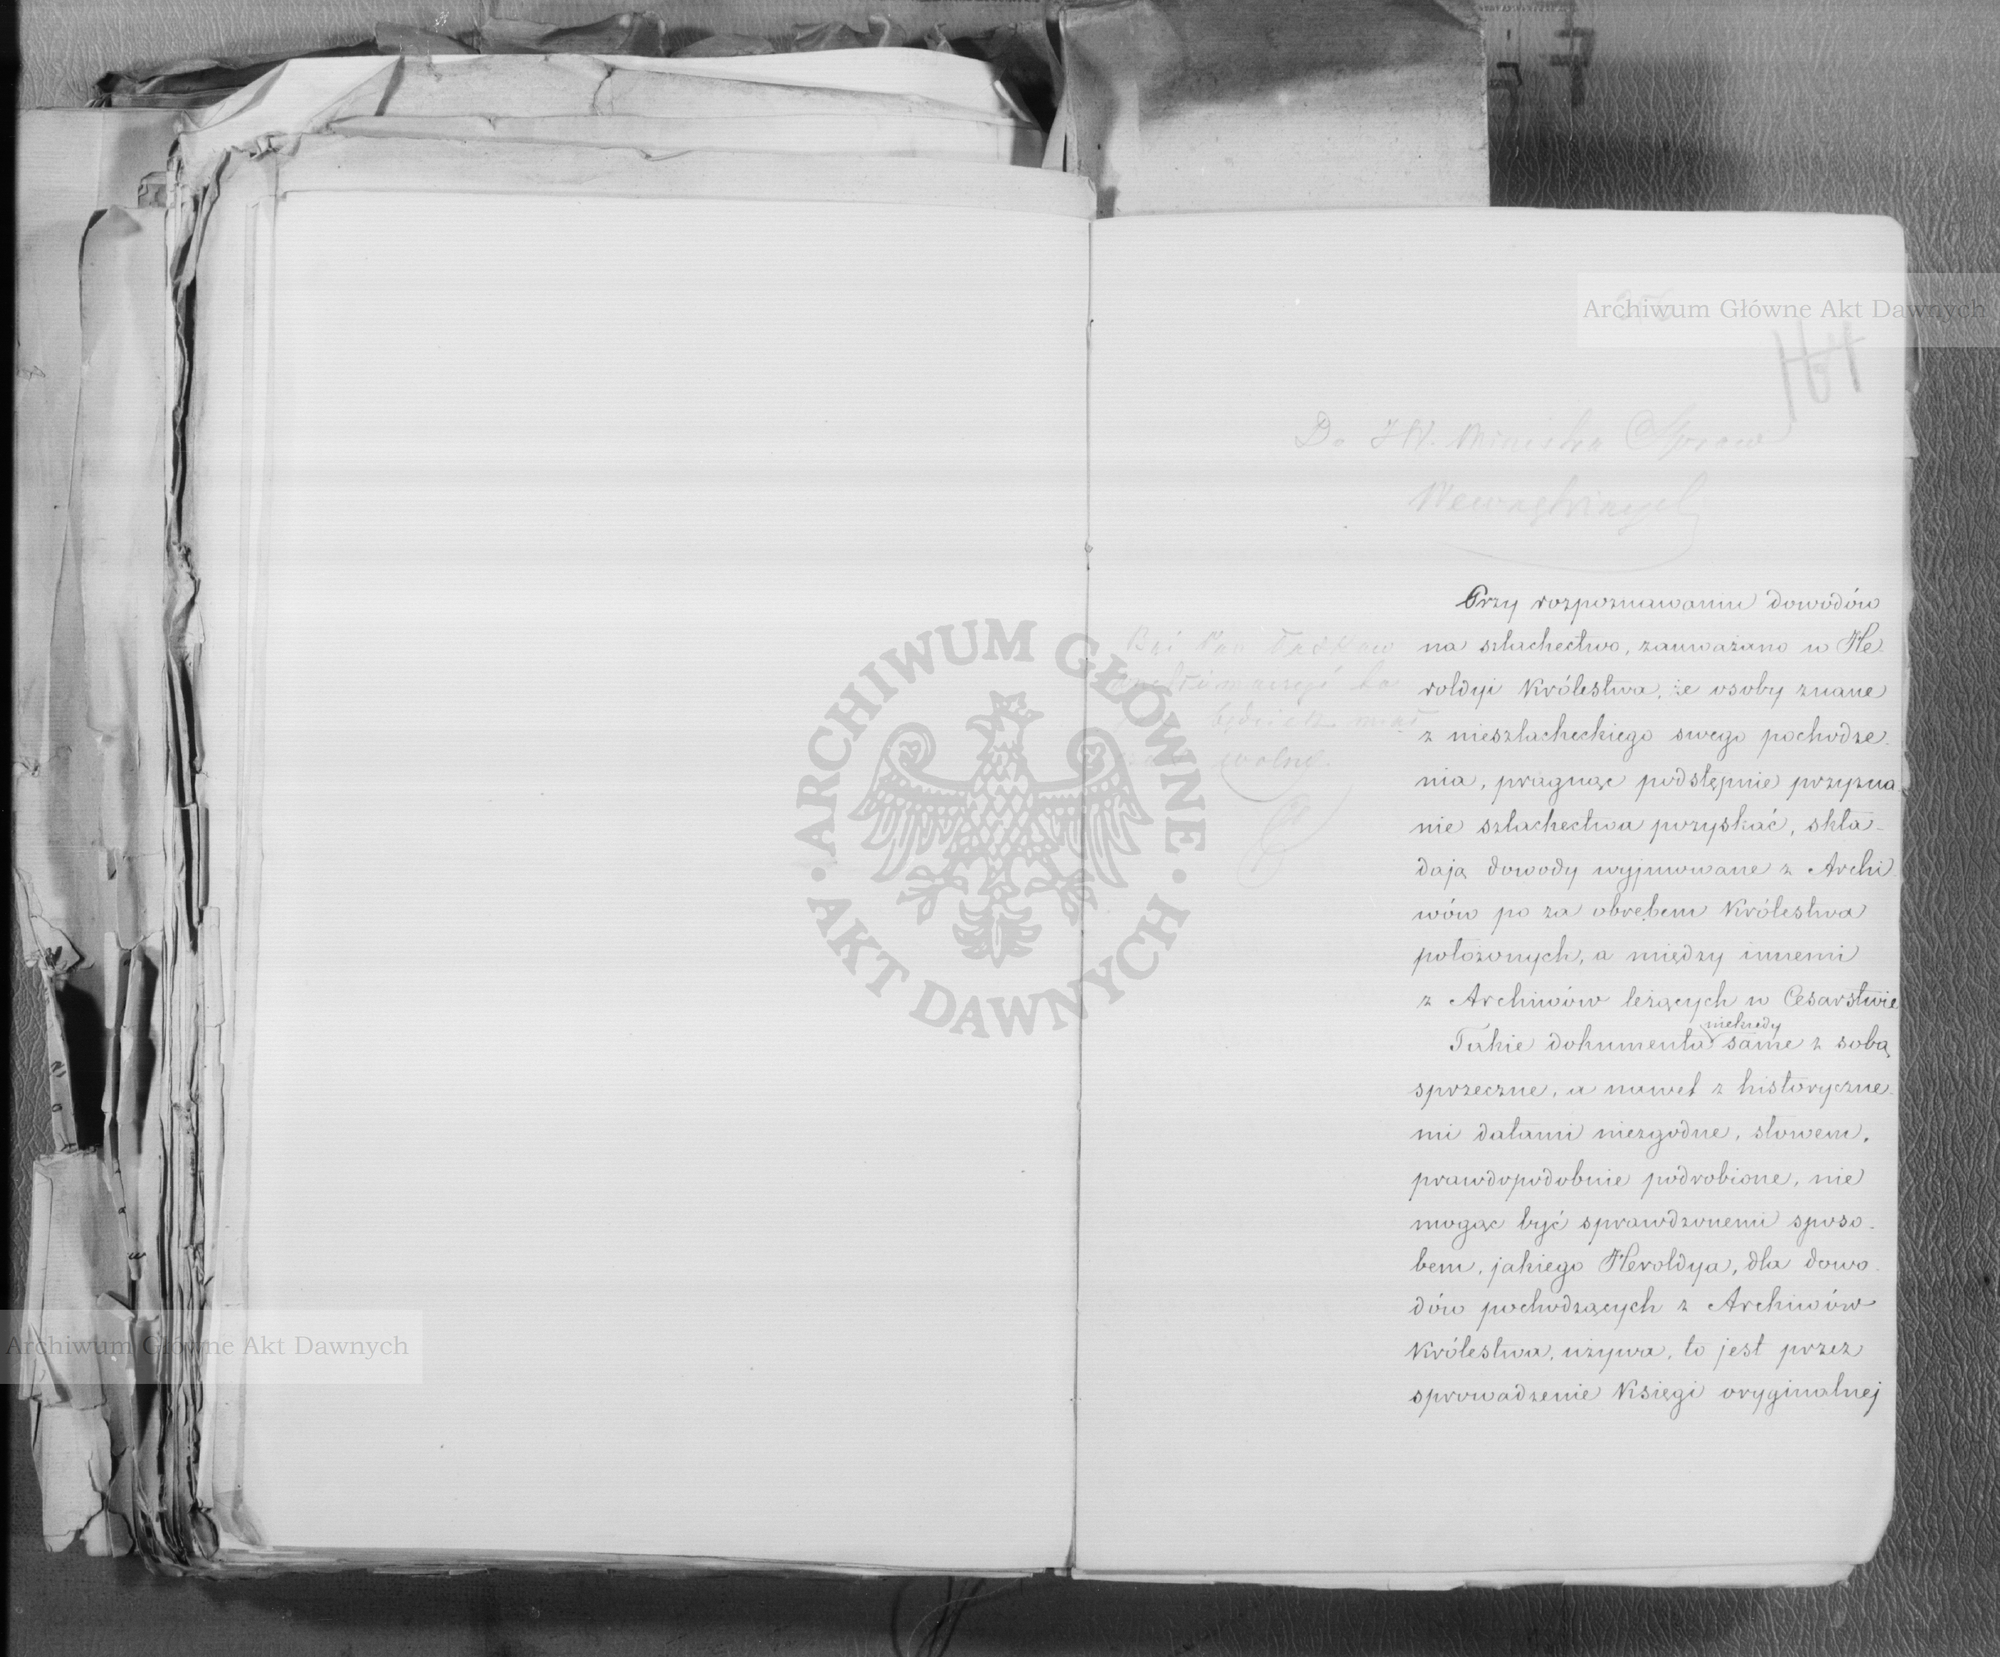 Archiwum Główne Akt Dawnych
Do JW. Ministra Spraw
Wewnętrznych
Przy rozpoznawaniu dowodów
na szlachectwo, zauważano w He-
roldyi Królestwa, że osoby znane
z nieszlacheckiego swego pochodze-
nia, pragnąc podstępnie przyzna
nie szlachectwa pozyskać, skła-
dają dowody wyjmowane z Archi
wów po za obrębem Królestwa
położonych, a między innemi
z Archiwów leżących w Cesarstwie
niekiedy
Takie dokumenta same z sobą
sprzeczne, a nawet z historyczne-
mi datami niezgodne, słowem,
prawdopodobnie podrobione, nie
mogąc być sprawdzonemi sposo-
bem, jakiego Heroldya, dla dowo-
dów pochodzących z Archiwów
Królestwa, używa, to jest przez
sprowadzenie Księgi oryginalnej
będzie
wolne.
ARCHIWUM GŁÓWNE
AKT DAWNYCH
Archiwum Główne Akt Dawnych